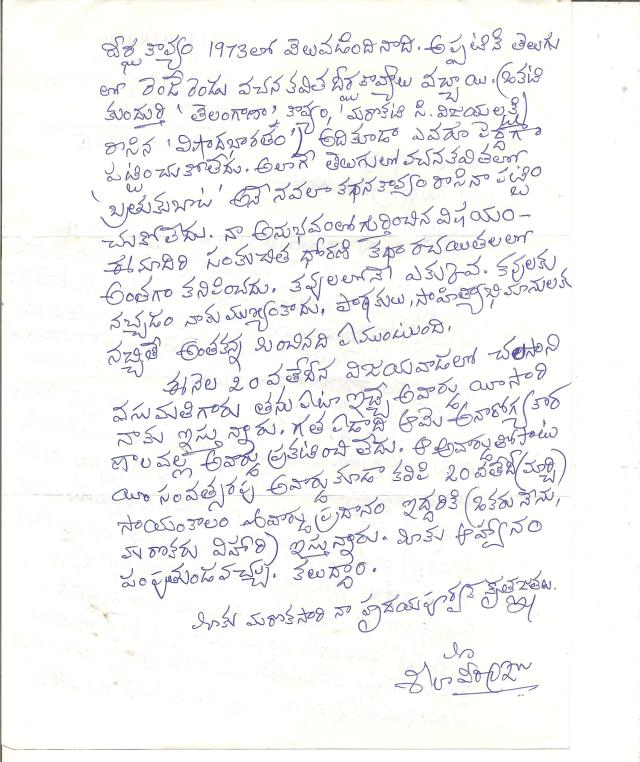 దీర్ఘ కావ్యం 1973లో వెలువడింది నాది. అప్పటికి తెలుగు
లో రెండే రెండు వచన కవిత దీర్ఘకావ్యాలు వచ్చాయి. (ఒకటి
కుందుర్తి 'తెలంగాణా' కావ్యం, మరొకటి సి. విజయలక్ష్మి
రాసిన 'విషాదభారతం') అది కూడా ఎవరూ పెద్దగా
పట్టించుకోలేదు. అలాగే తెలుగులో వచనకవితలో
'బ్రతుకుబాట' అనే నవలా కథన కావ్యం రాసినా పట్టిం
చుకోలేదు. నా అనుభవంలో గుర్తించిన విషయం -
ఈమాదిరి సంకుచిత ధోరణి కథా రచయితలలో
అంతగా కనిపించదు. కవులలోనే ఎక్కువ. కవులకు
నచ్చడం నాకు ముఖ్యంకాదు. పాఠకులు, సాహిత్యాభిమానులకు
నచ్చితే అంతకన్న మించినది ఏముంటుంది.
ఈనెల 20వ తేదీన విజయవాడలో చలసాని
వసుమతిగారు తను ఏటా ఇచ్చే అవార్డు యీసారి
నాకు ఇస్తున్నారు. గత ఏడాది ఆమె అనారోగ్య కార
ణాలవల్ల అవార్డు ప్రకటించలేదు. ఆ అవార్డుతోపాటు
యీ సంవత్సరపు అవార్డు కూడా కలిపి 20వతేదీ (మార్చి)
సాయంకాలం అవార్డు ప్రదానం ఇద్దరికి (ఒకరు నేను,
మరొకరు విహారి) ఇస్తున్నారు. మీకు ఆహ్వానం
పంపుతుండవచ్చు. కలుద్దాం.
మీకు మరొకసారి నా హృదయపూర్వక కృతజ్ఞతలు.
మీ
శీలా వీర్రాజు